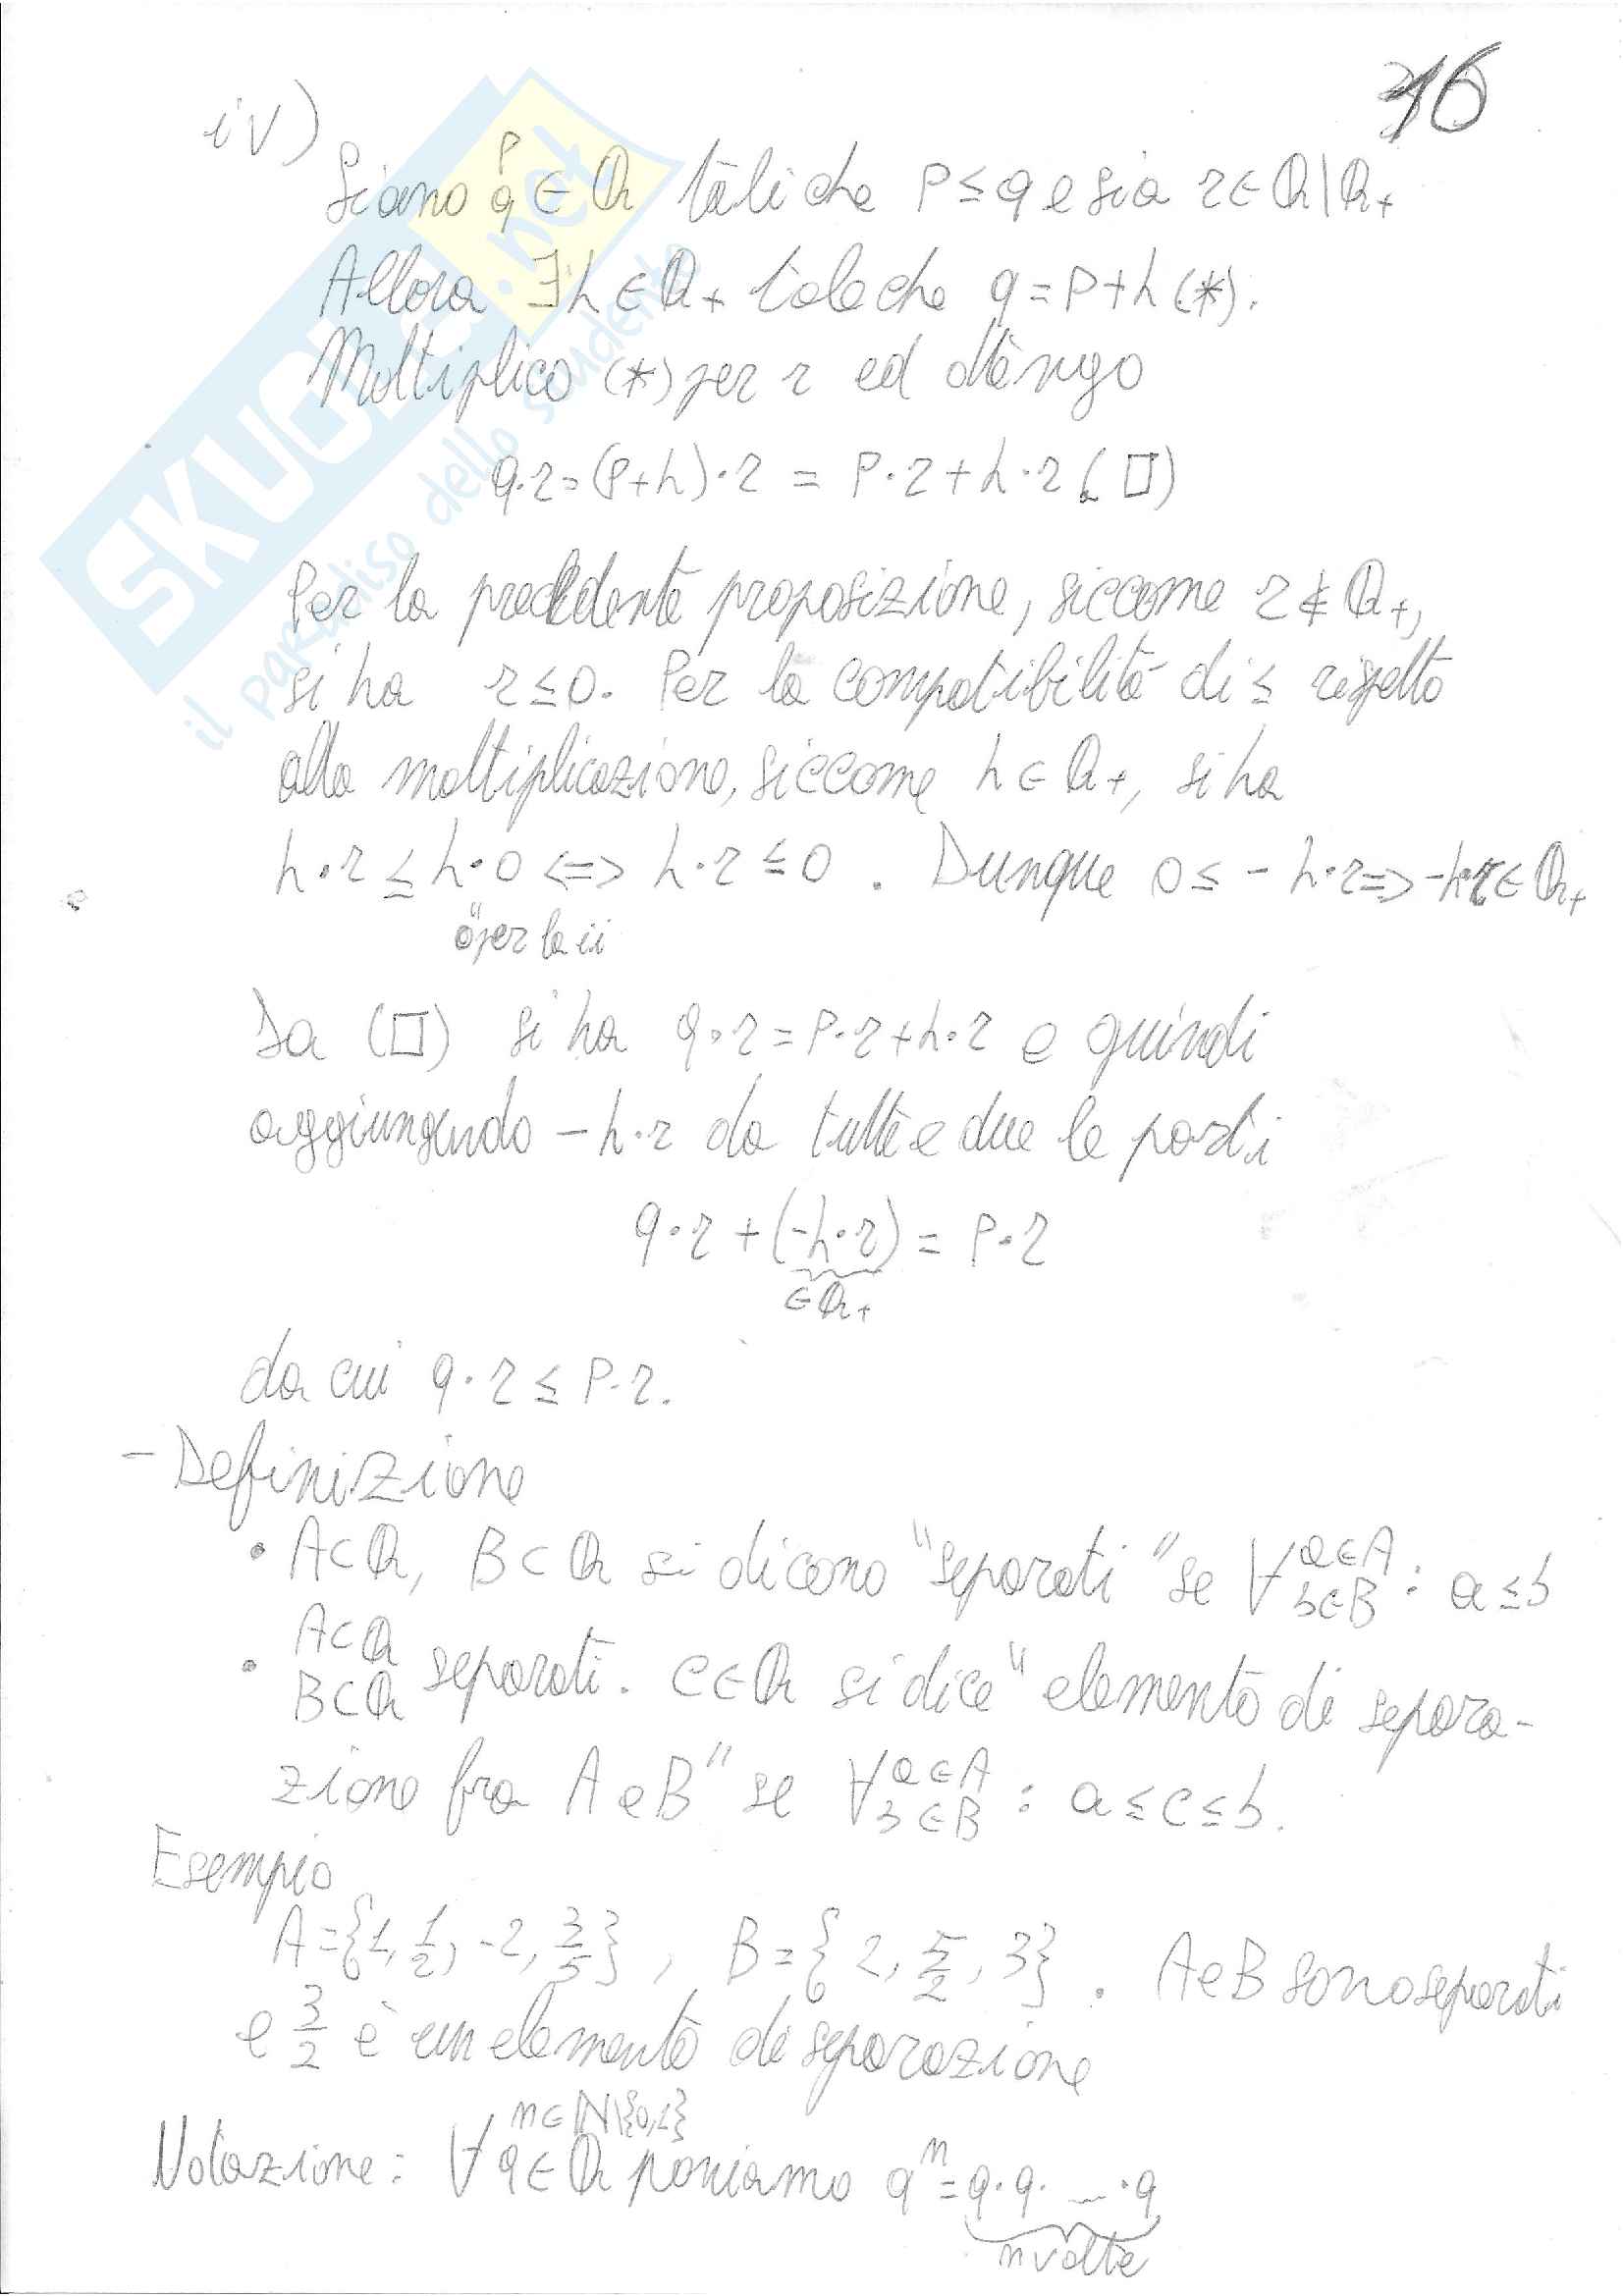 16
iv)
Siano p, q ∈ ℚ tali che p ≤ q e sia r ∈ ℚ \ ℚ₊
Allora ∃ h ∈ ℚ₊ tale che q = p + h (*).
Moltiplico (*) per r ed ottengo
q·r = (p+h)·r = p·r + h·r (□)
Per la precedente proposizione, siccome r ∉ ℚ₊,
si ha r ≤ 0. Per la compatibilità di ≤ rispetto
alla moltiplicazione, siccome h ∈ ℚ₊, si ha
h·r ≤ h·0 <=> h·r ≤ 0. Dunque 0 ≤ -h·r => -h·r ∈ ℚ₊
" 0 per la ii
Da (□) si ha q·r = p·r + h·r e quindi
aggiungendo -h·r da tutte e due le parti
q·r + (-h·r) = p·r
∈ ℚ₊
da cui q·r ≤ p·r.
- Definizione
• A⊂ℚ, B⊂ℚ si dicono "separati" se ∀ a∈A b∈B : a ≤ b
• A⊂ℚ B⊂ℚ separati. c∈ℚ si dice "elemento di separa-
zione fra A e B" se ∀ a∈A b∈B : a ≤ c ≤ b.
Esempio
A = {1, 1/2, -2, 3/5}, B = {2, 5/2, 3}. A e B sono separati
e 3/2 è un elemento di separazione
n∈ℕ\{0,1}
Notazione: ∀ q∈ℚ poniamo qⁿ = q·q· ... ·q
n volte
SKUOLA.net
il paradiso dello studente